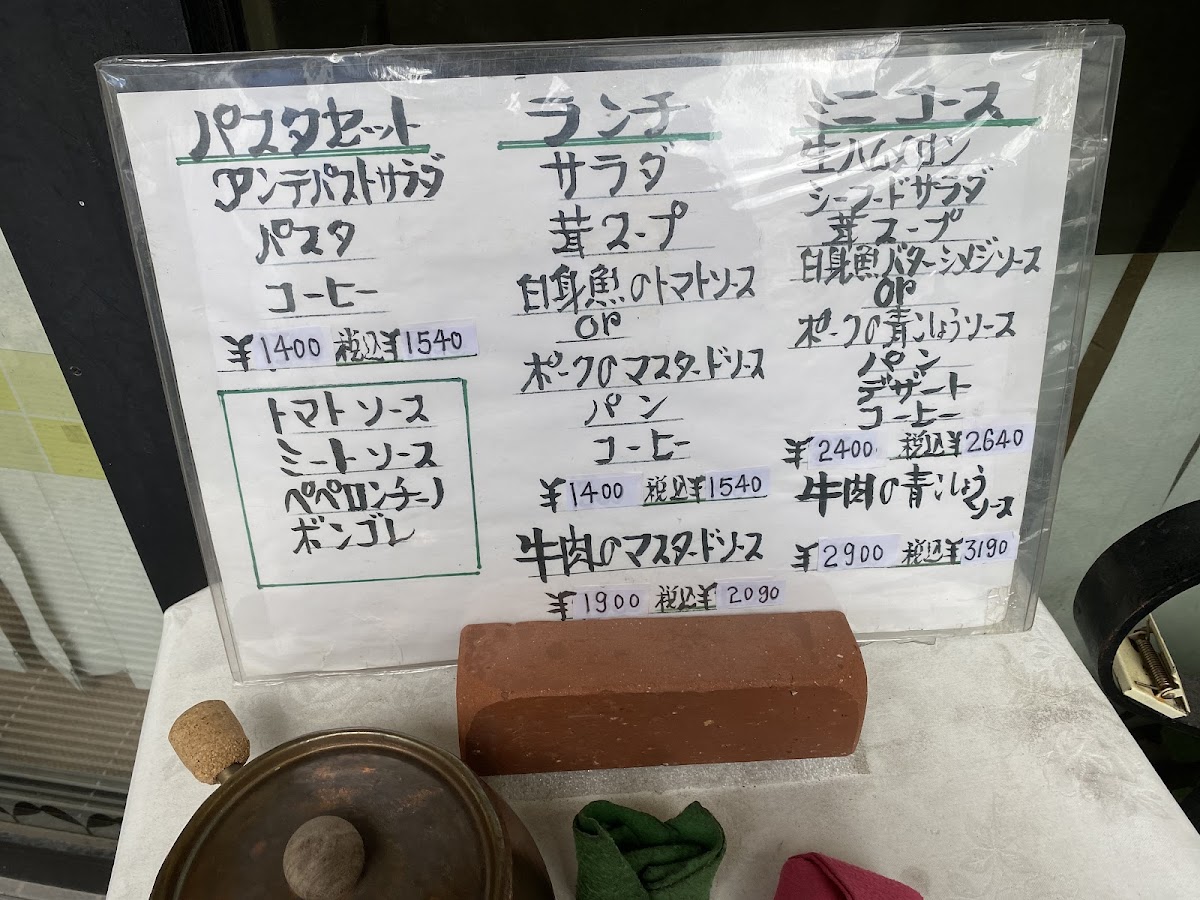 パスタセット
アンテパストサラダ
パスタ
コーヒー
¥1400 税込¥1540
トマトソース
ミートソース
ペペロンチーノ
ボンゴレ
ランチ
サラダ
茸スープ
白身魚のトマトソース
or
ポークのマスタードソース
パン
コーヒー
¥1400 税込¥1540
牛肉のマスタードソース
¥1900 税込¥2090
ミニコース
生ハムメロン
シーフードサラダ
茸スープ
白身魚バターシメジソース
or
ポークの青こしょうソース
パン
デザート
コーヒー
¥2400 税込¥2640
牛肉の青こしょう
ソース
¥2900 税込¥3190